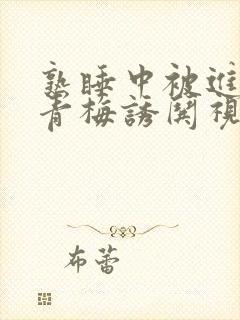 熟睡中被進
青梅誘関視
布蕾